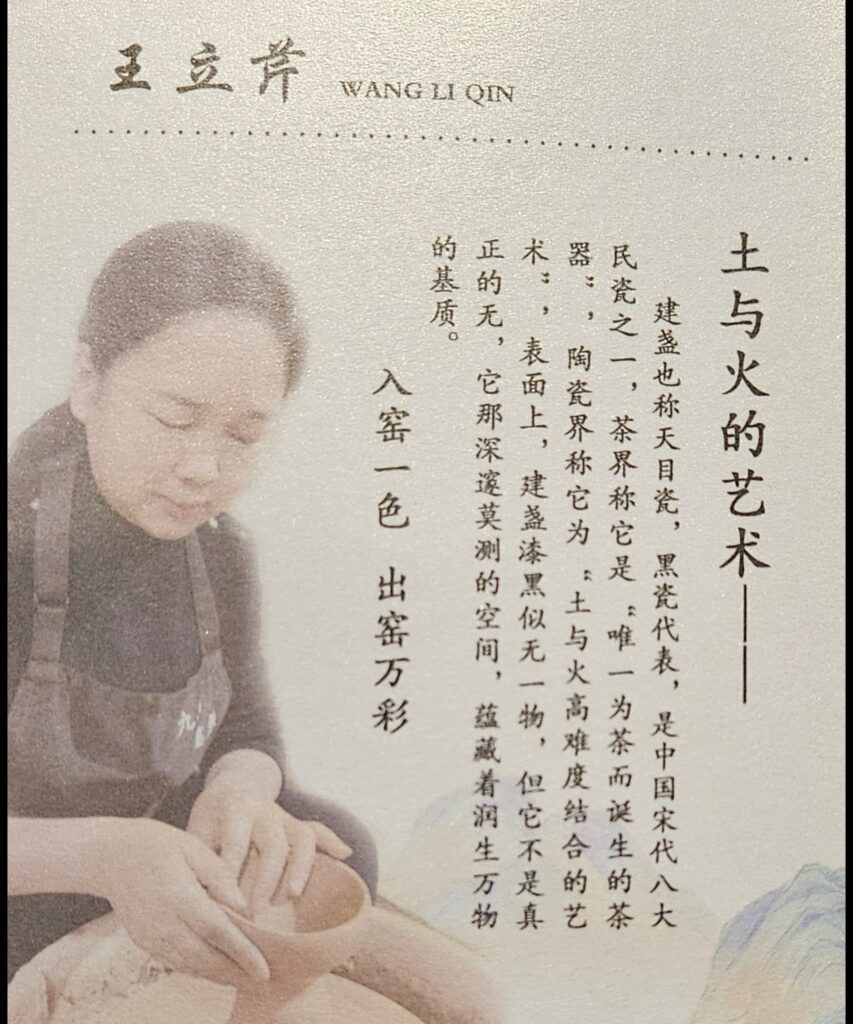 王立芹 WANG LI QIN
土与火的艺术——
建盏也称天目瓷，黑瓷代表，是中国宋代八大
民瓷之一，茶界称它是“唯一为茶而诞生的茶
器”，陶瓷界称它为“土与火高难度结合的艺
术”，表面上，建盏漆黑似无一物，但它不是真
正的无，它那深邃莫测的空间，蕴藏着润生万物
的基质。
入窑一色 出窑万彩
九